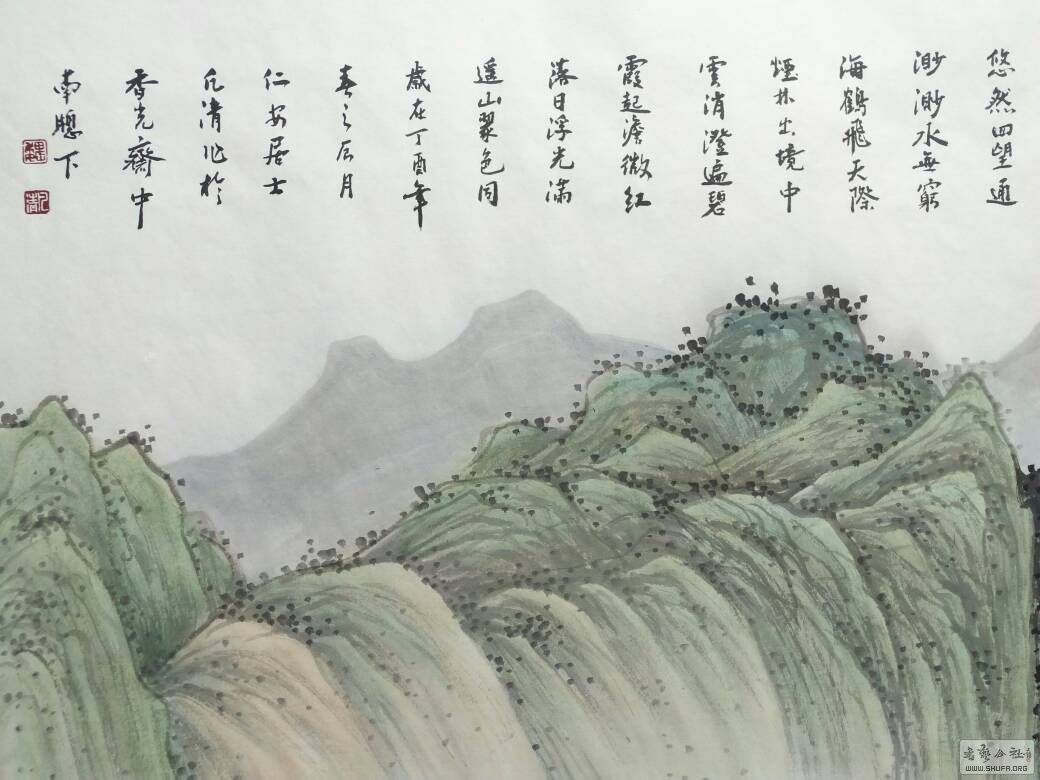 悠然四望通
渺渺水無窮
海鶴飛天際
煙林出境中
雲消澄遍碧
霞起澹微紅
落日浮光滿
遥山翠色同
歲在丁酉年
春之辰月
仁安居士
凡清作於
香光齋中
南窗下
WWW.SHUFA.ORG